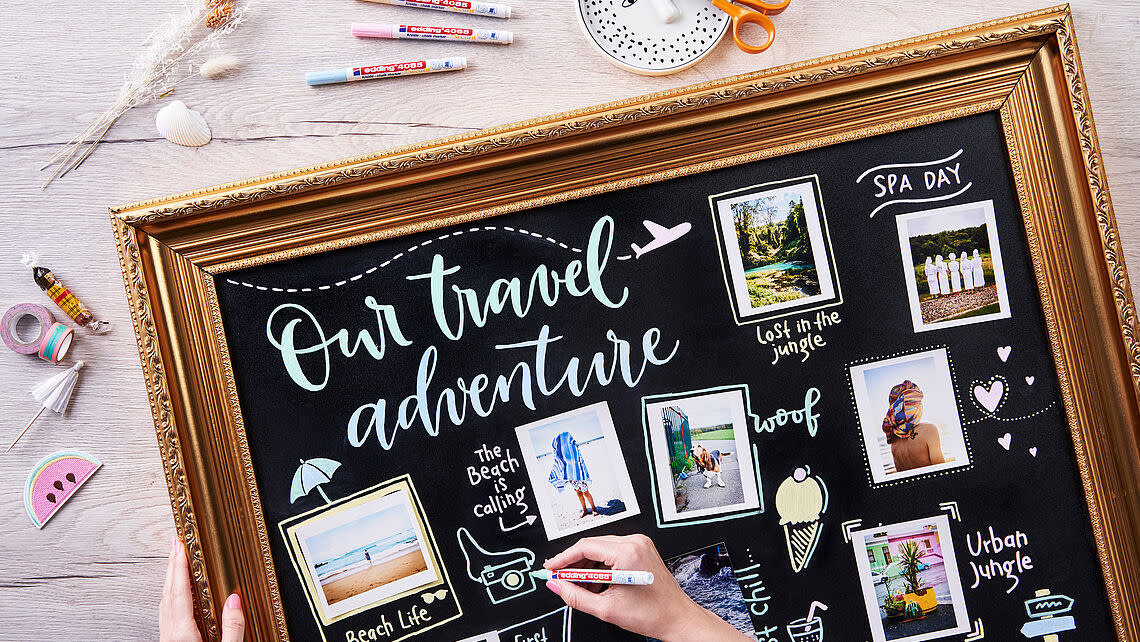 edding 4085
edding 4085
edding 4085
SPA DAY
Our travel
adventure
Lost in the
jungle
woof
The
Beach
is
calling
Urban
Jungle
edding 4085
Beach Life
First
chill...